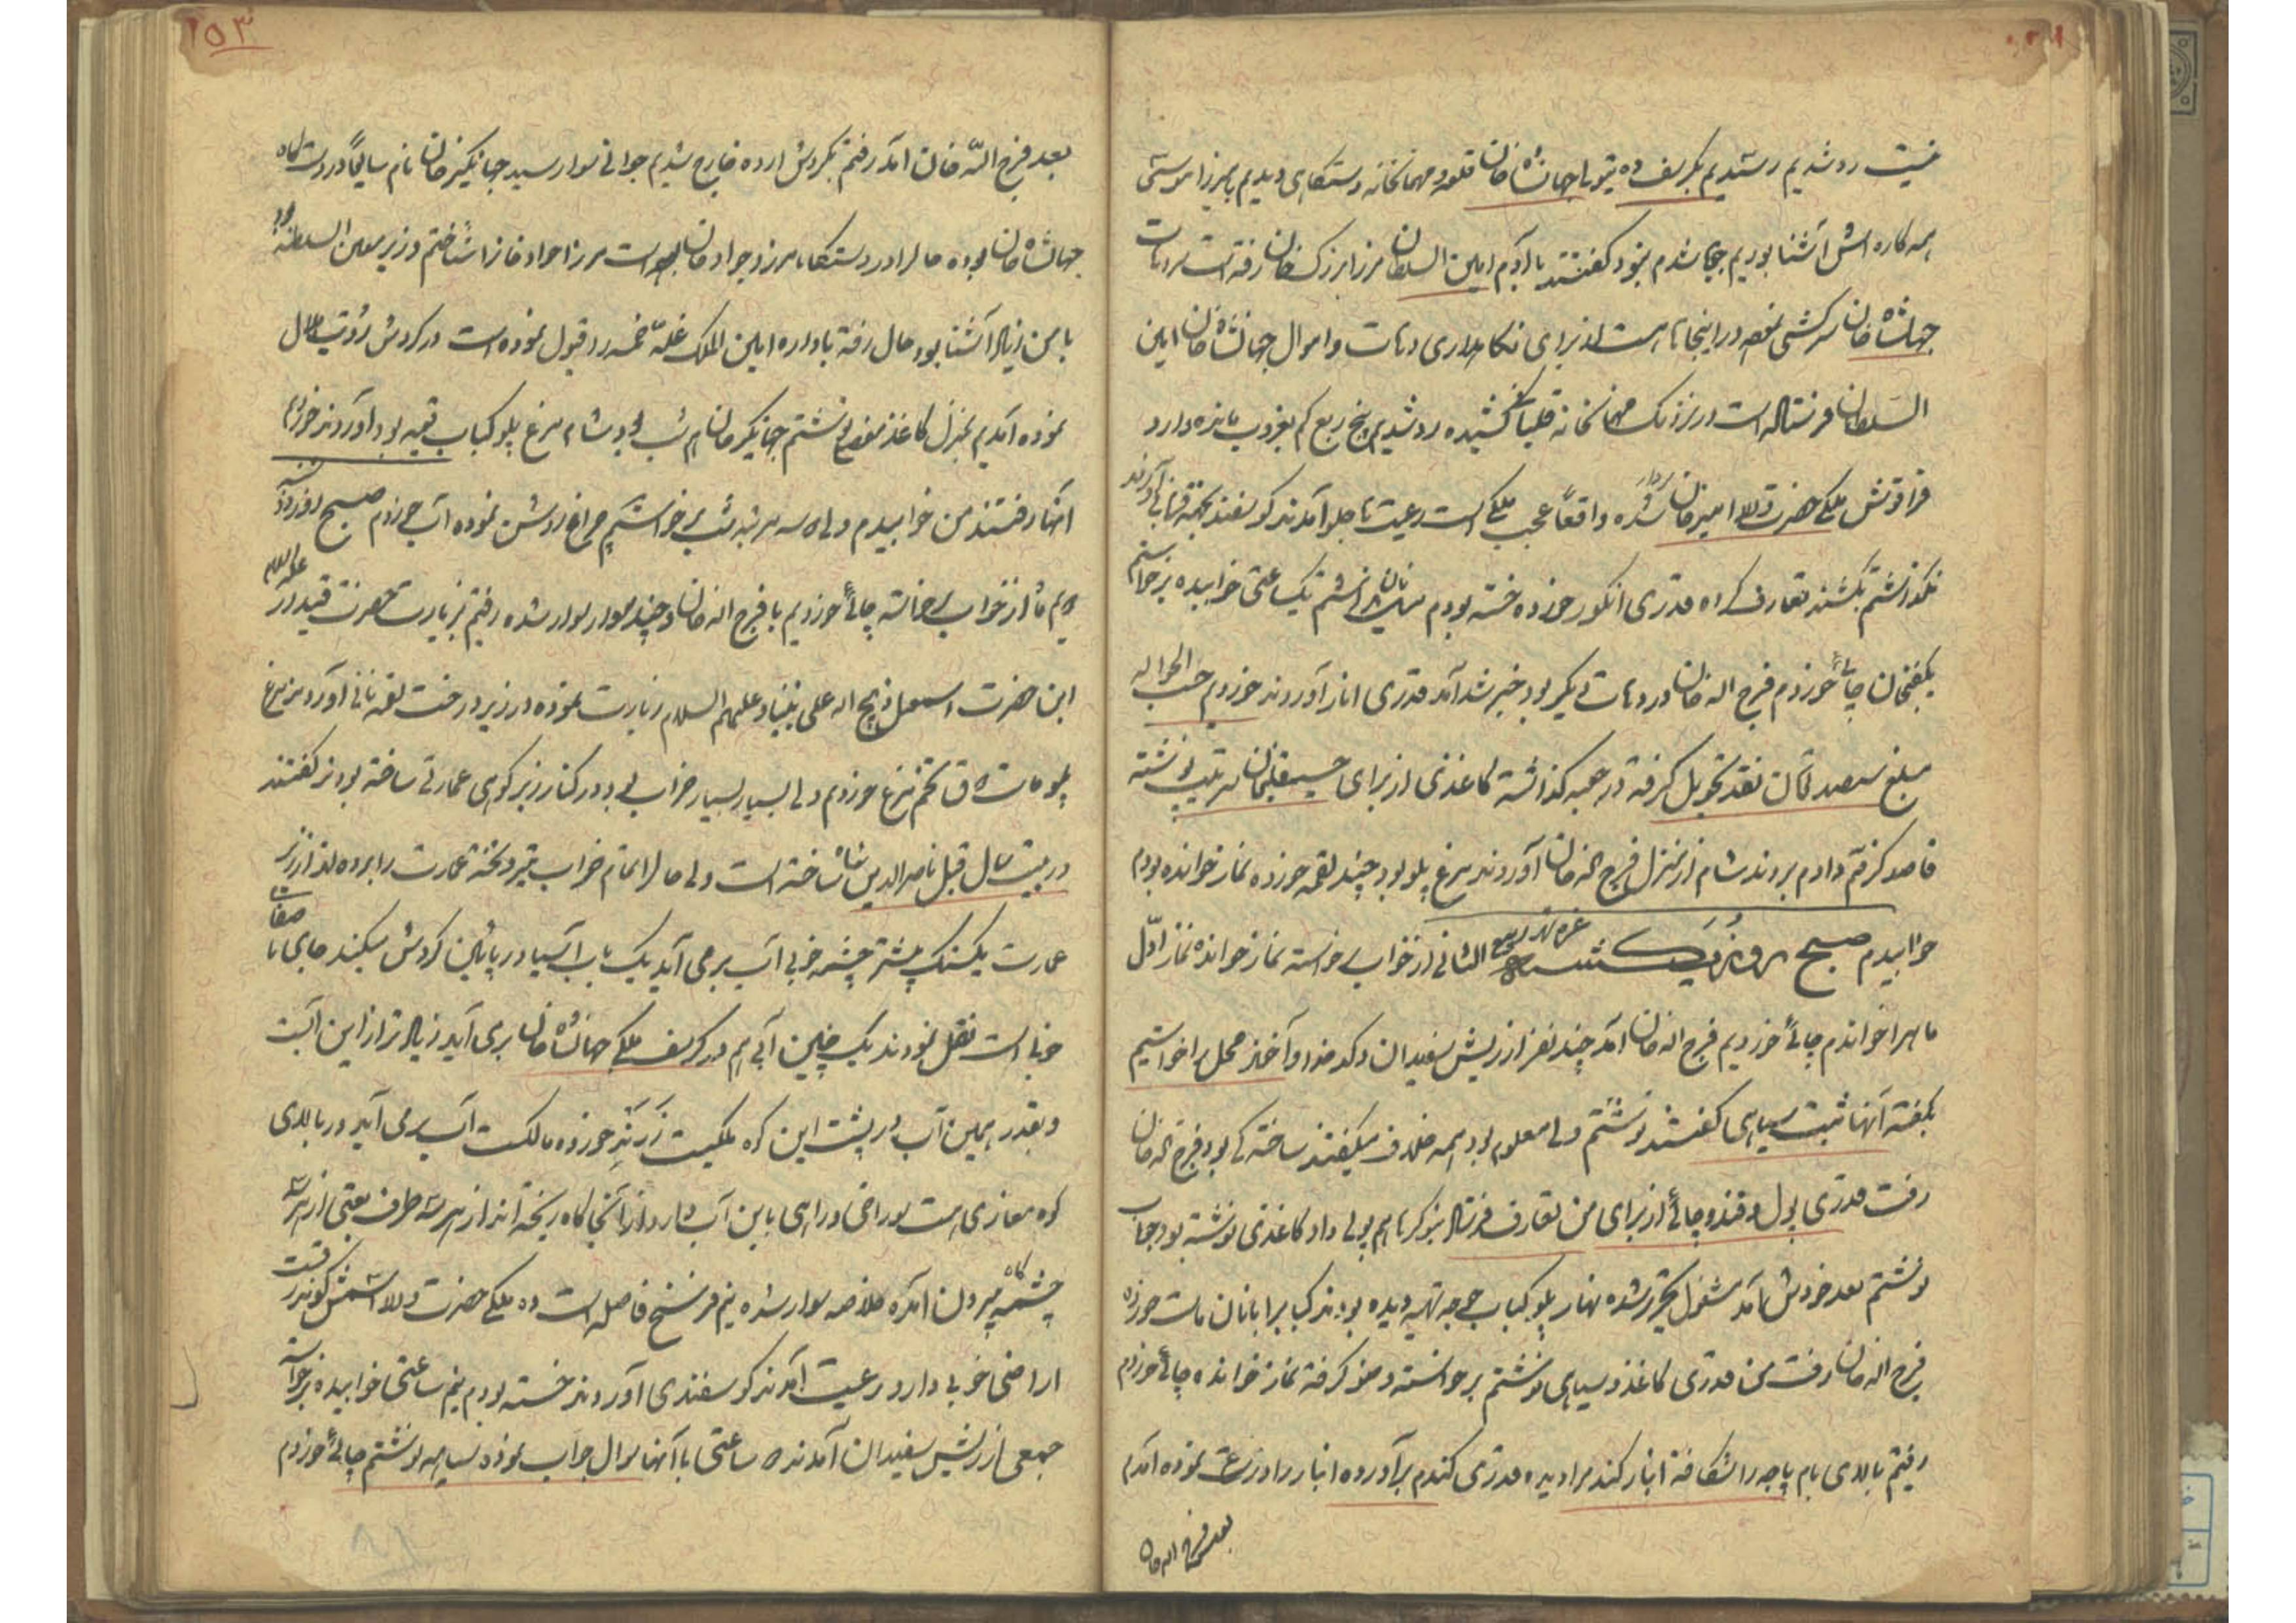 ۱۵۳
نیست رد شدیم رسیدیم بکرسف ده تیول جهانشاه خان قلعه و مهمانخانه دستگاهی دیدیم با میرزا موسی
همه کاره اش آشنا بودیم جویا شدم نبود گفتند با آدم امین السلطان میرزا بزرگ خان رفته است بدهات
جهانشاه خان سرکشی در اینجاها هست از برای نگاهداری دهات و اموال جهانشاه خان امین
السلطان فرستاده است در نزدیک مهمانخانه قلیانی کشیده رد شدیم پنج ربع کم بغروب مانده وارد
ملکی حضرت والا امیرخان سردار شده واقعاً عجب ملکی است رعیت ها جلو آمدند گوسفند بجهة قربانی آوردند
نگذاشتم بکشند تعارف کرده قدری انگور خورده خسته بودم یک ساعتی خوابیده برخواستم
یکفنجان چائی خوردم فرج اله خان در دهات دیگر بود خبر شد آمد قدری انار آوردند خوردم حسب الحواله
مبلغ سیصد تومان نقد تحویل گرفته در جعبه گذاشته کاغذی از برای حسینقلیخان سرتیپ نوشته
قاصد گرفتم دادم بردند شام از منزل فرج اله خان آوردند مرغ پلو بود چند لقمه خورده نماز خوانده بودم
خوابیدم صبح روز یکشنبه غره شهر ربیع الثانی از خواب برخواسته نماز خوانده نماز اول
ماه را خواندم چائی خوردیم فرج اله خان آمد چند نفر از ریش سفیدان و کدخدا و آخوند محل را خواستیم
بگفته آنها ثبت سیاهی گفتند نوشتم ولی معلوم بود همه خلاف میگفتند ساختگی بود فرج اله خان
رفت قدری پول و قند و چائی از برای من تعارف فرستاد بنوکرها هم پولی داد کاغذی نوشته بود جواب
نوشتم بعد خودش آمد مشغول تحریر شده نهار پلو کباب جوجه تهیه دیده بودند کباب را با نان ماست خورده
فرج اله خان رفت من قدری کاغذ و سیاهی نوشتم برخواسته وضو گرفته نماز خوانده چائی خوردم
رفتم بالای بام باجه را شکافته انبار گندم را دیده قدری گندم برآورده انبار را ذرعت نموده آمدم
بعد فرج اله خان
بعد فرج اللّه خان آمد رفتم بگردش از ده خارج شدیم جوانی سوار رسید جهانگیر خان نام سابقاً در دستگاه
جهانشاه خان بوده حالا در دستگاه میرزا جواد خان است میرزا جواد خان را شناختم وزیر معین السلطنه بود
با من زیاد آشنا بود حال رفته باداره امین الملک غلّه خمسه را قبول نموده است در گردش رؤیت هلال
نموده آمدیم بمنزل کاغذ مفصلی نوشتم جهانگیر خان هم شب بود شام مرغ پلو کباب قیمه بود آوردند خوردیم
آنها رفتند من خوابیدم ولی سه مرتبه شب برخواستم چراغ روشن نموده آب خوردم صبح روز دوشنبه
از خواب برخاسته چائی خوردیم با فرج اله خان و چند سوار سوار شده رفتیم بزیارت حضرت قیدار علیه السلام
ابن حضرت اسمعیل ذبیح اله علی نبینا و علیهم السلام زیارت نموده در زیر درخت لقمه نانی آوردند مرغ
پلو ماست تخم مرغ خوردم ولی بسیار بسیار خراب بود در کنار زیر کوهی عمارتی ساخته بودند گفتند
در بیست سال قبل ناصرالدین شاه ساخته است ولی حالا تمام خراب تیر و تخته عمارت را برده اند از زیر
عمارت یکسنگ بیشتر چشمه خوبی آب برمی آید یک باب آسیا در پائین گردش میکند جای با صفای
خوبی است نقل نمودند یک چنین آبی هم در کرسف ملکی جهانشاه خان برمی آید زیادتر از این آبست
و بقدر همین آب در پشت این کوه ملکیست زرند خورده مالکست آب برمی آید در بالای
کوه مغازی هست سوراخی و راهی باین آب دارد از آنجا کاه ریخته اند از هر سه طرف یعنی از هر سه
چشمه کاه بیرون آمده خلاصه سوار شده نیم فرسنخ فاصله است ده ملکی حضرت والا گویند رفتیم
اراضی خوبی دارد رعیت آمدند گوسفندی آوردند خسته بودم نیم ساعتی خوابیده برخواسته
جمعی از ریش سفیدان آمدند ساعتی با آنها سوال جواب نموده سیاهه نوشتم چائی خوردم